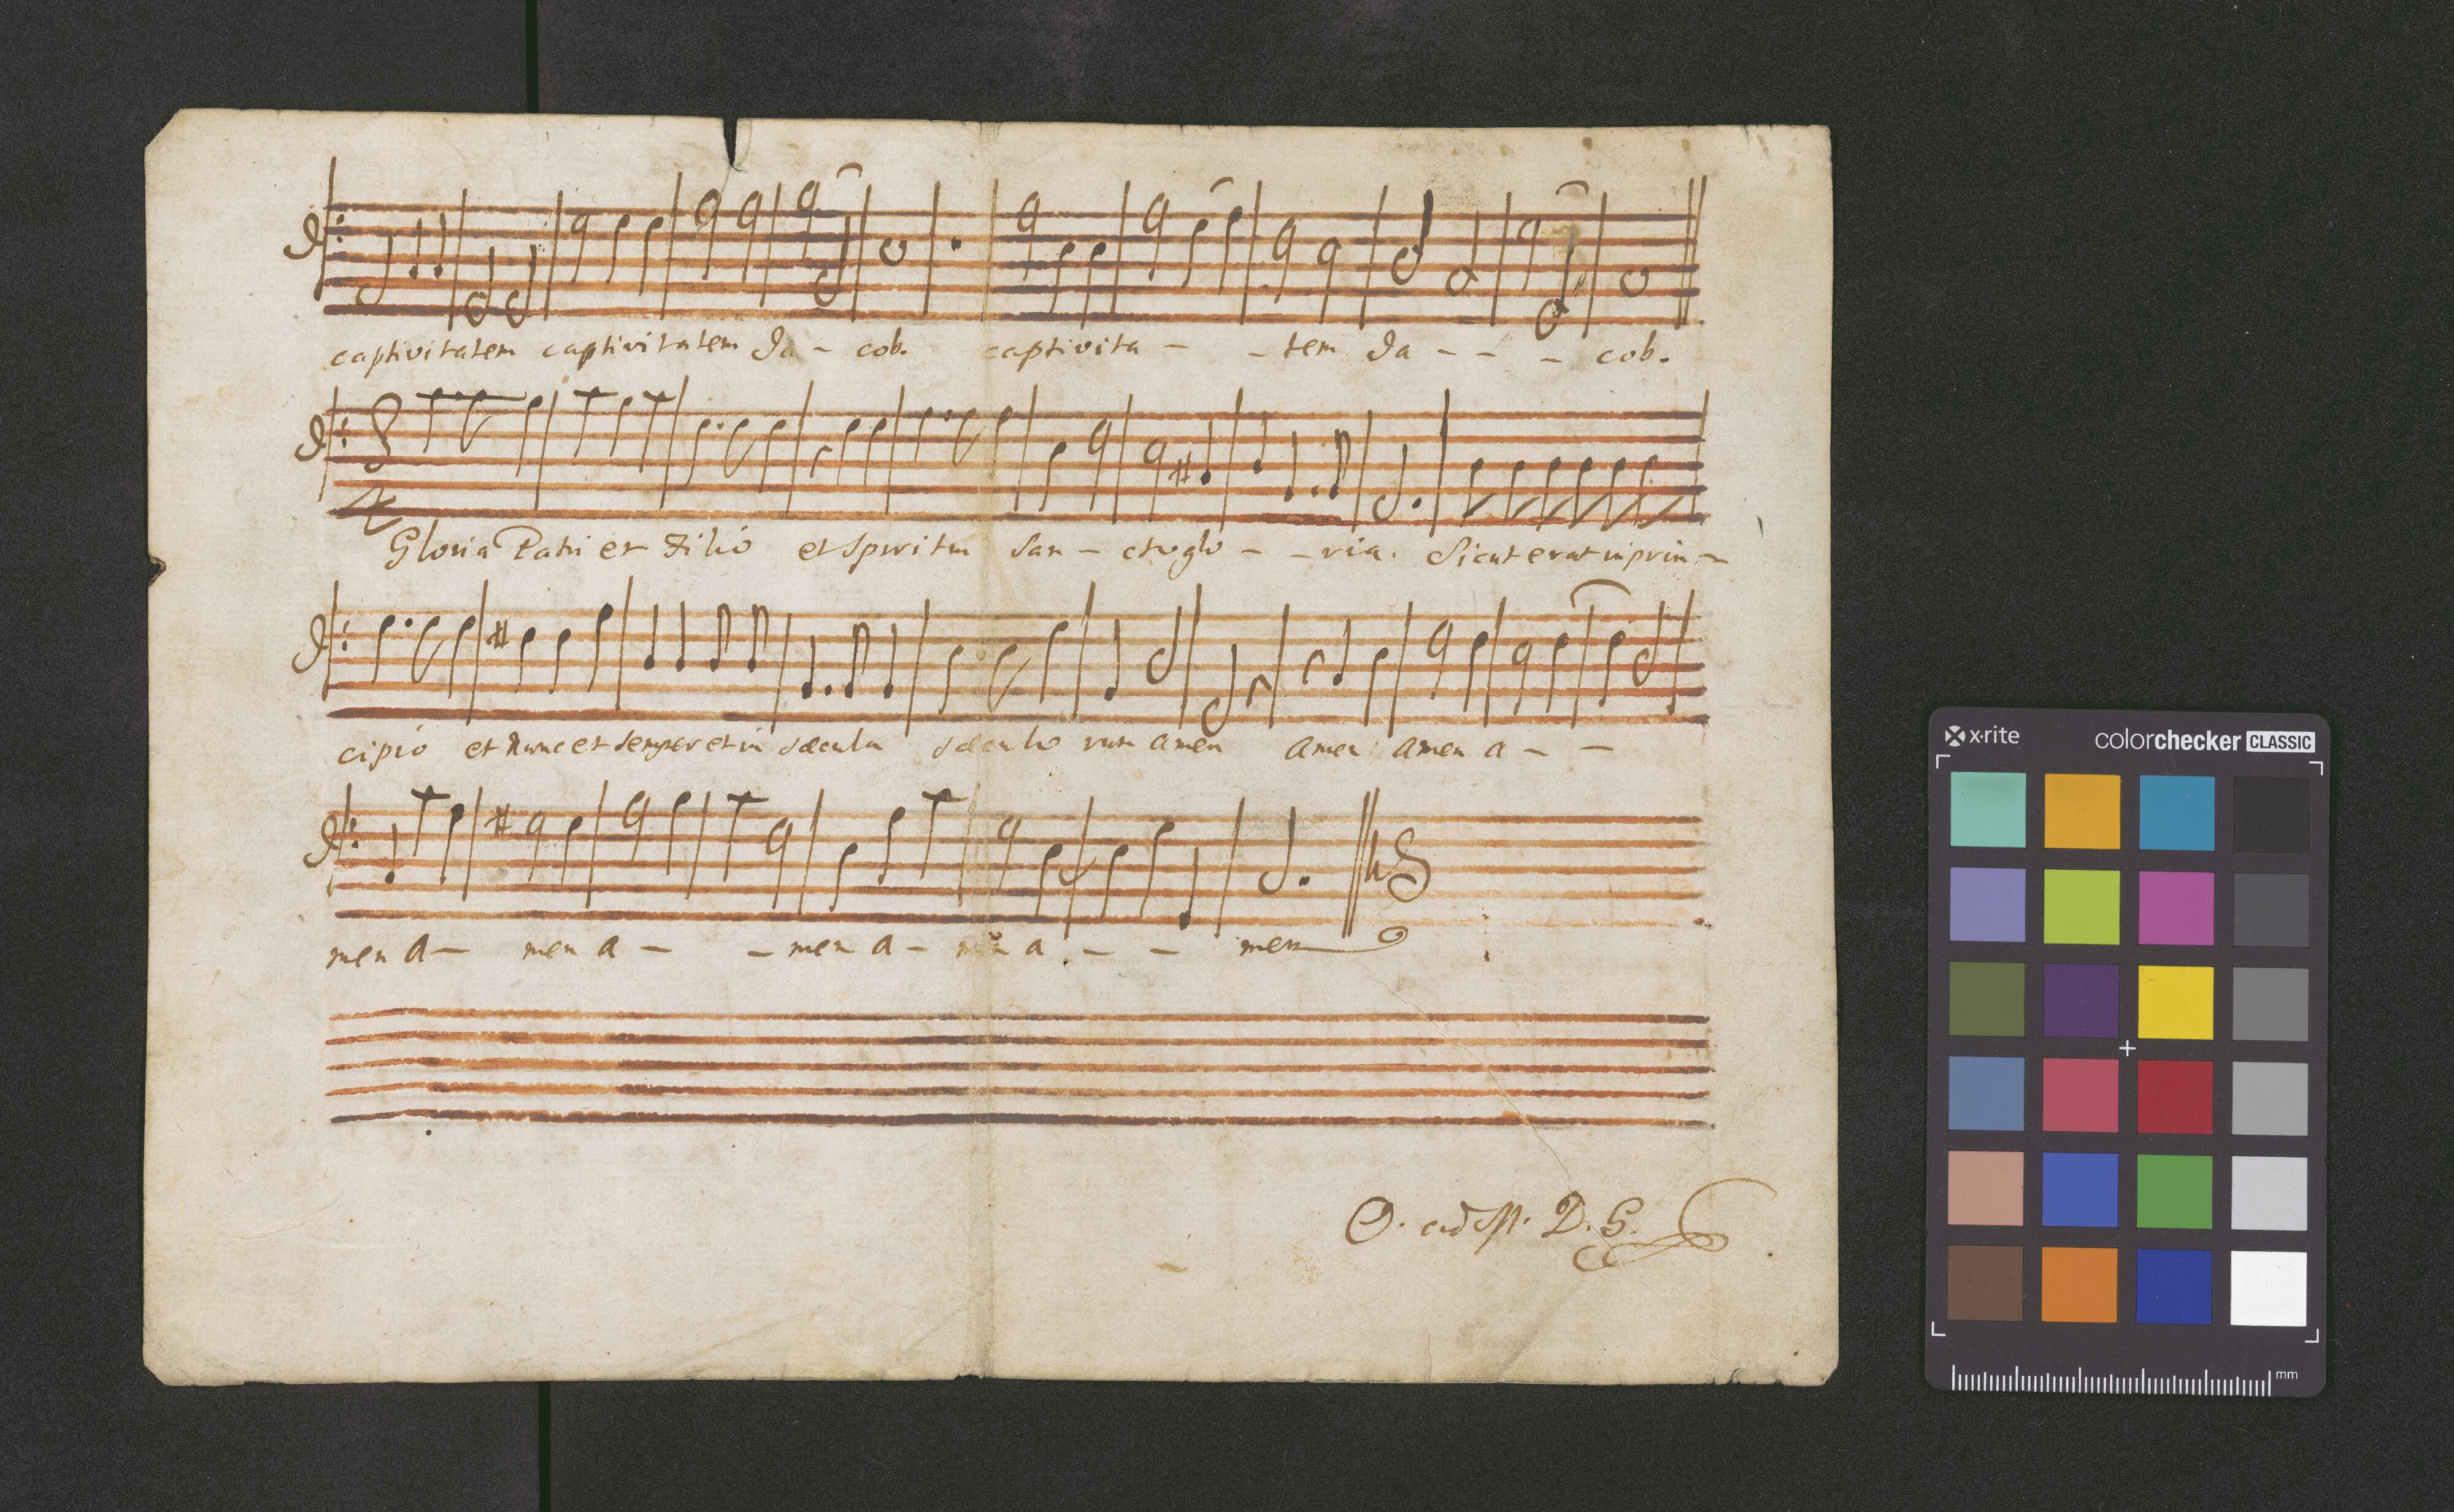 captivitatem captivitatem Ja - cob. captivita - - tem Ja - - - cob.
Gloria Patri et Filio et Spiritui San - cto glo - - ria. Sicut erat in prin -
cipio et nunc et semper et in sæcula sæculo rum amen amen amen a - -
men a - men a - - men a - men a - - men
D. G.
x·rite colorchecker CLASSIC
mm